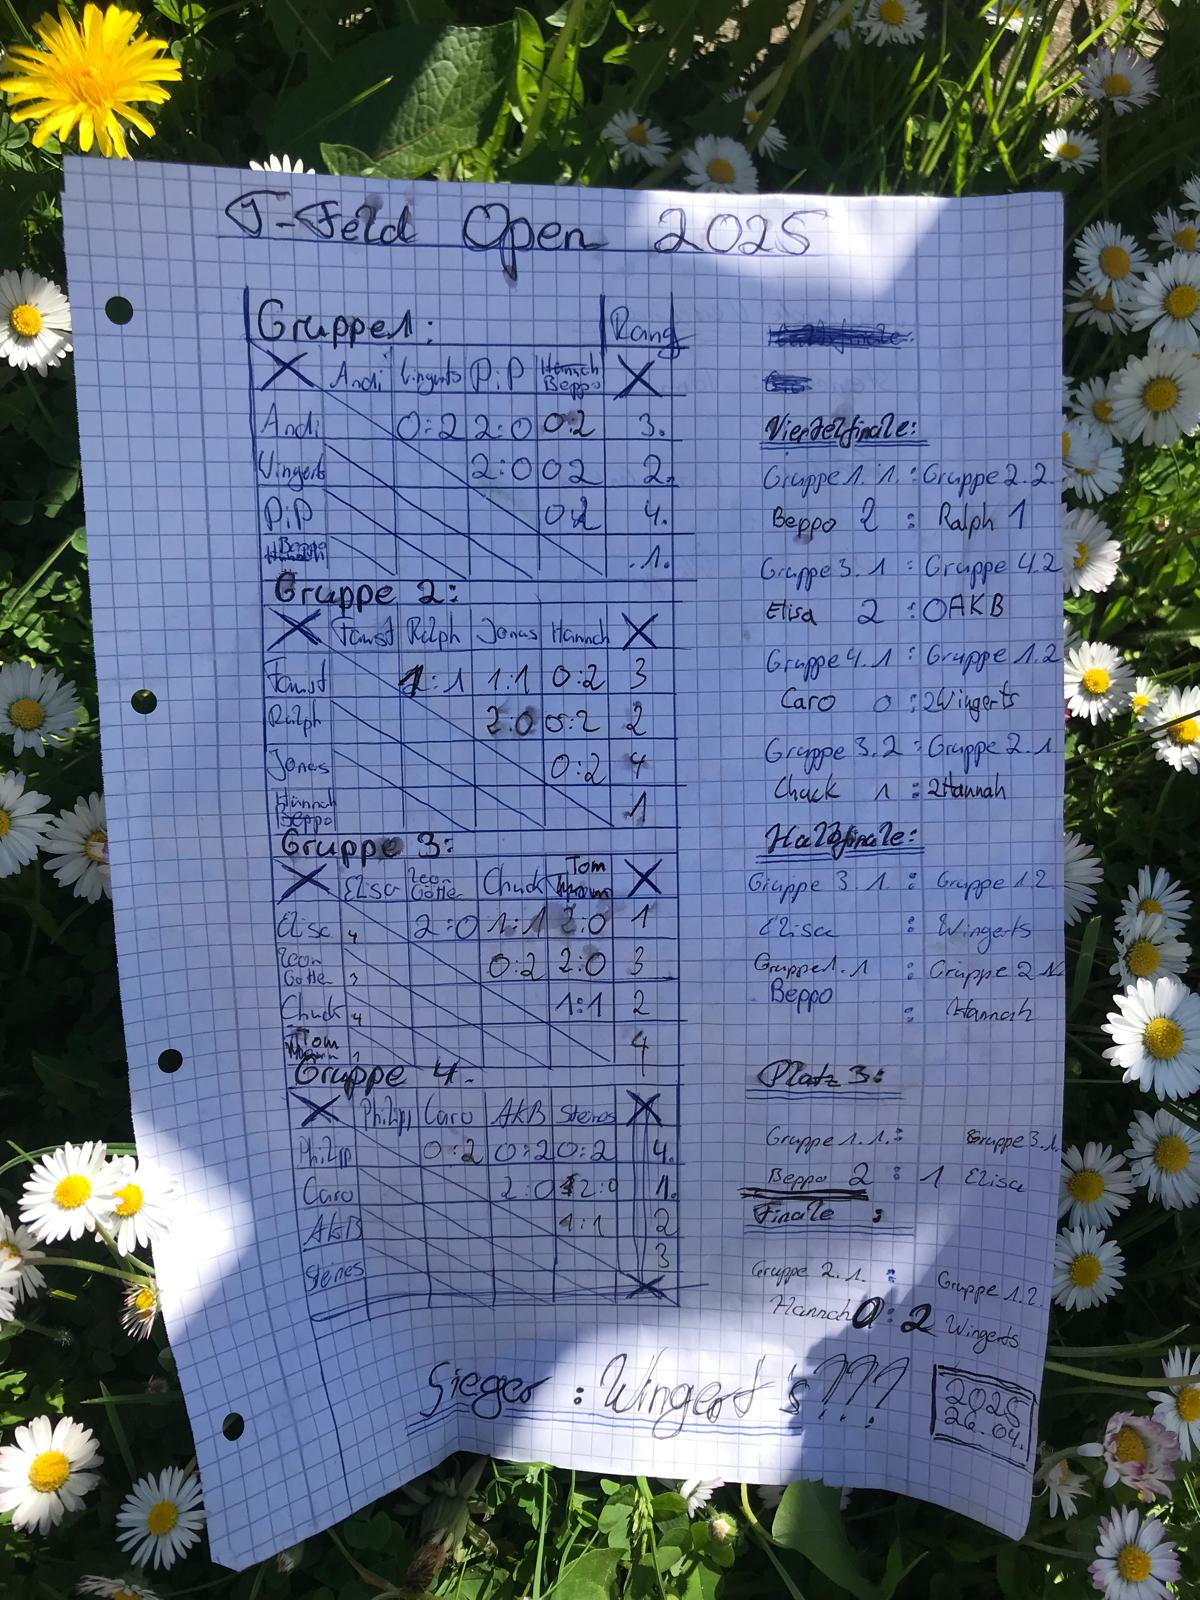 T-Feld Open 2025
Gruppe 1: Rang
Andi Wingerts PiP Hannah Beppo
Andi 0:2 2:0 0:2 3.
Wingerts 2:0 0 2 2.
PiP 0:2 4.
Beppo 1.
Gruppe 2:
Faust Ralph Jonas Hannah
Faust 1:1 1:1 0:2 3
Ralph 2:0 0:2 2
Jonas 0:2 4
Hannah Beppo 1
Gruppe 3:
Elisa Leon Götte Chuck Tom
Elisa 4 2:0 1:1 2:0 1
Leon Götte 3 0:2 2:0 3
Chuck 4 1:1 2
Tom 1 4
Gruppe 4.
Philipp Caro AKB Stenes
Philipp 0:2 0:2 0:2 4.
Caro 2:0 2:0 1.
AKB 1:1 2
Stenes 3
Viertelfinale:
Gruppe 1. 1. : Gruppe 2.2.
Beppo 2 : Ralph 1
Gruppe 3.1 : Gruppe 4.2
Elisa 2 : 0 AKB
Gruppe 4.1 : Gruppe 1.2
Caro 0 : 2 Wingerts
Gruppe 3.2 : Gruppe 2.1.
Chuck 1 : 2 Hannah
Halbfinale:
Gruppe 3.1. : Gruppe 1.2
Elisa : Wingerts
Gruppe 1.1 : Gruppe 2.1.
Beppo : Hannah
Platz 3:
Gruppe 1.1. : Gruppe 3.1.
Beppo 2 : 1 Elisa
Finale :
Gruppe 2.1. : Gruppe 1.2.
Hannah 0 : 2 Wingerts
Sieger : Wingert's???
2025
26.04.